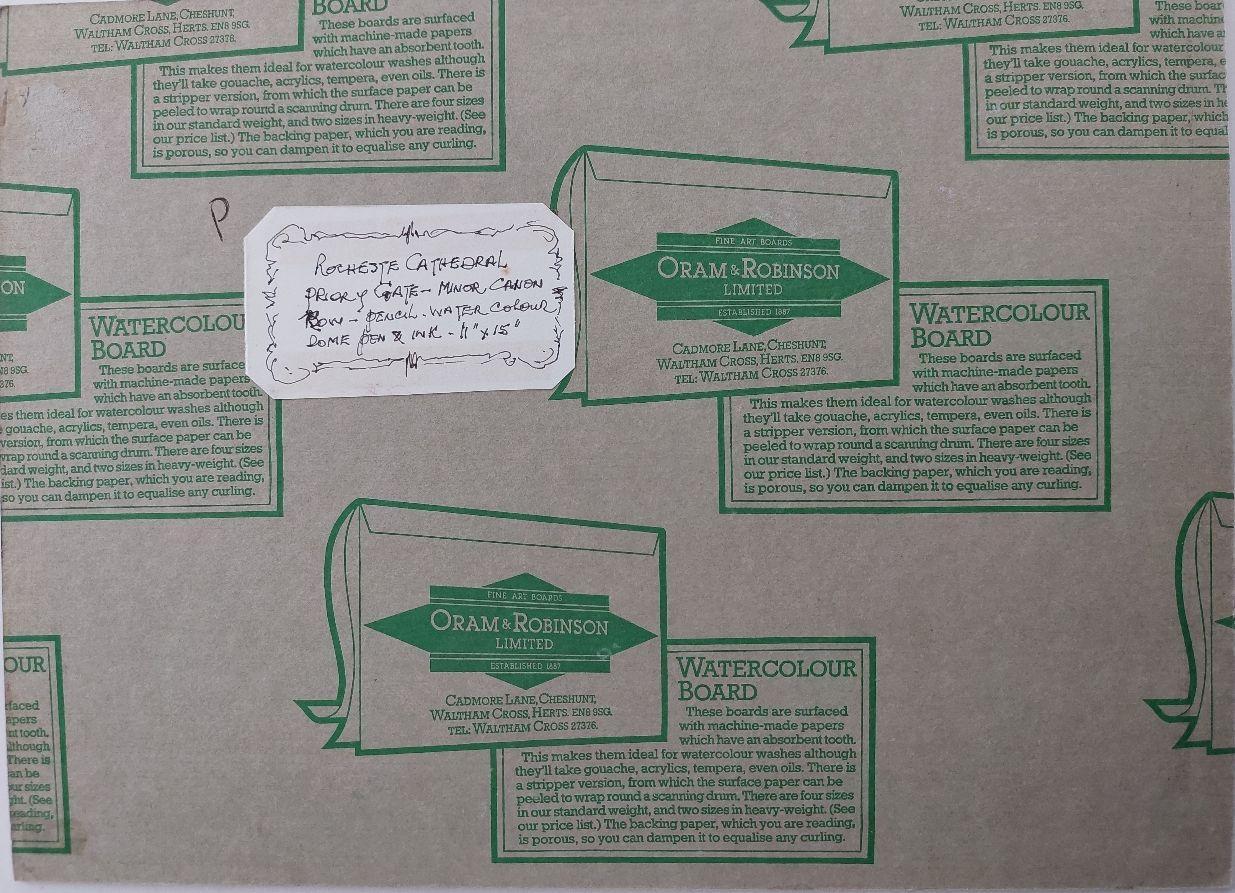 CADMORE LANE, CHESHUNT,
WALTHAM CROSS, HERTS. EN8 9SG.
TEL: WALTHAM CROSS 27376.
BOARD
These boards are surfaced
with machine-made papers
which have an absorbent tooth.
This makes them ideal for watercolour washes although
they'll take gouache, acrylics, tempera, even oils. There is
a stripper version, from which the surface paper can be
peeled to wrap round a scanning drum. There are four sizes
in our standard weight, and two sizes in heavy-weight. (See
our price list.) The backing paper, which you are reading,
is porous, so you can dampen it to equalise any curling.
WALTHAM CROSS, HERTS. EN8 9SG.
TEL: WALTHAM CROSS 27376.
These boar
with machin
which have a
This makes them ideal for watercolour
they'll take gouache, acrylics, tempera, e
a stripper version, from which the surfac
peeled to wrap round a scanning drum. Th
in our standard weight, and two sizes in he
our price list.) The backing paper, which
is porous, so you can dampen it to equal
P
ROCHESTE CATHEDRAL
PRIORY GATE - MINOR CANON
ROW - PENCIL - WATER COLOUR
SOME PEN & INK - 11" x 15"
ON
NT,
N8 9SG.
376.
WATERCOLOU
BOARD
These boards are surface
with machine-made papers
which have an absorbent tooth
es them ideal for watercolour washes although
gouache, acrylics, tempera, even oils. There is
version, from which the surface paper can be
wrap round a scanning drum. There are four sizes
dard weight, and two sizes in heavy-weight. (See
ist.) The backing paper, which you are reading,
so you can dampen it to equalise any curling.
FINE ART BOARDS
ORAM & ROBINSON
LIMITED
ESTABLISHED 1887
CADMORE LANE, CHESHUNT,
WALTHAM CROSS, HERTS. EN8 9SG.
TEL: WALTHAM CROSS 27376.
WATERCOLOUR
BOARD
These boards are surfaced
with machine-made papers
which have an absorbent tooth.
This makes them ideal for watercolour washes although
they'll take gouache, acrylics, tempera, even oils. There is
a stripper version, from which the surface paper can be
peeled to wrap round a scanning drum. There are four sizes
in our standard weight, and two sizes in heavy-weight. (See
our price list.) The backing paper, which you are reading,
is porous, so you can dampen it to equalise any curling.
FINE ART BOARDS
ORAM & ROBINSON
LIMITED
ESTABLISHED 1887
CADMORE LANE, CHESHUNT,
WALTHAM CROSS, HERTS. EN8 9SG.
TEL: WALTHAM CROSS 27376.
WATERCOLOUR
BOARD
These boards are surfaced
with machine-made papers
which have an absorbent tooth.
This makes them ideal for watercolour washes although
they'll take gouache, acrylics, tempera, even oils. There is
a stripper version, from which the surface paper can be
peeled to wrap round a scanning drum. There are four sizes
in our standard weight, and two sizes in heavy-weight. (See
our price list.) The backing paper, which you are reading,
is porous, so you can dampen it to equalise any curling.
OUR
rfaced
apers
nt tooth.
lthough
There is
an be
ur sizes
ght. (See
reading,
urling.